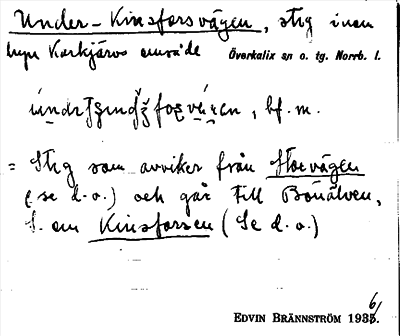 Under-Kinsforsvägen, stig inom
byn Korkjärvs område Överkalix sn o. tg. Norrb. l.
, bf. m.
= Stig som avviker från Storvägen
(se d.o.) och går till Bönälven,
S. om Kinsforsen (Se d.o.)
EDVIN BRÄNNSTRÖM 1936.